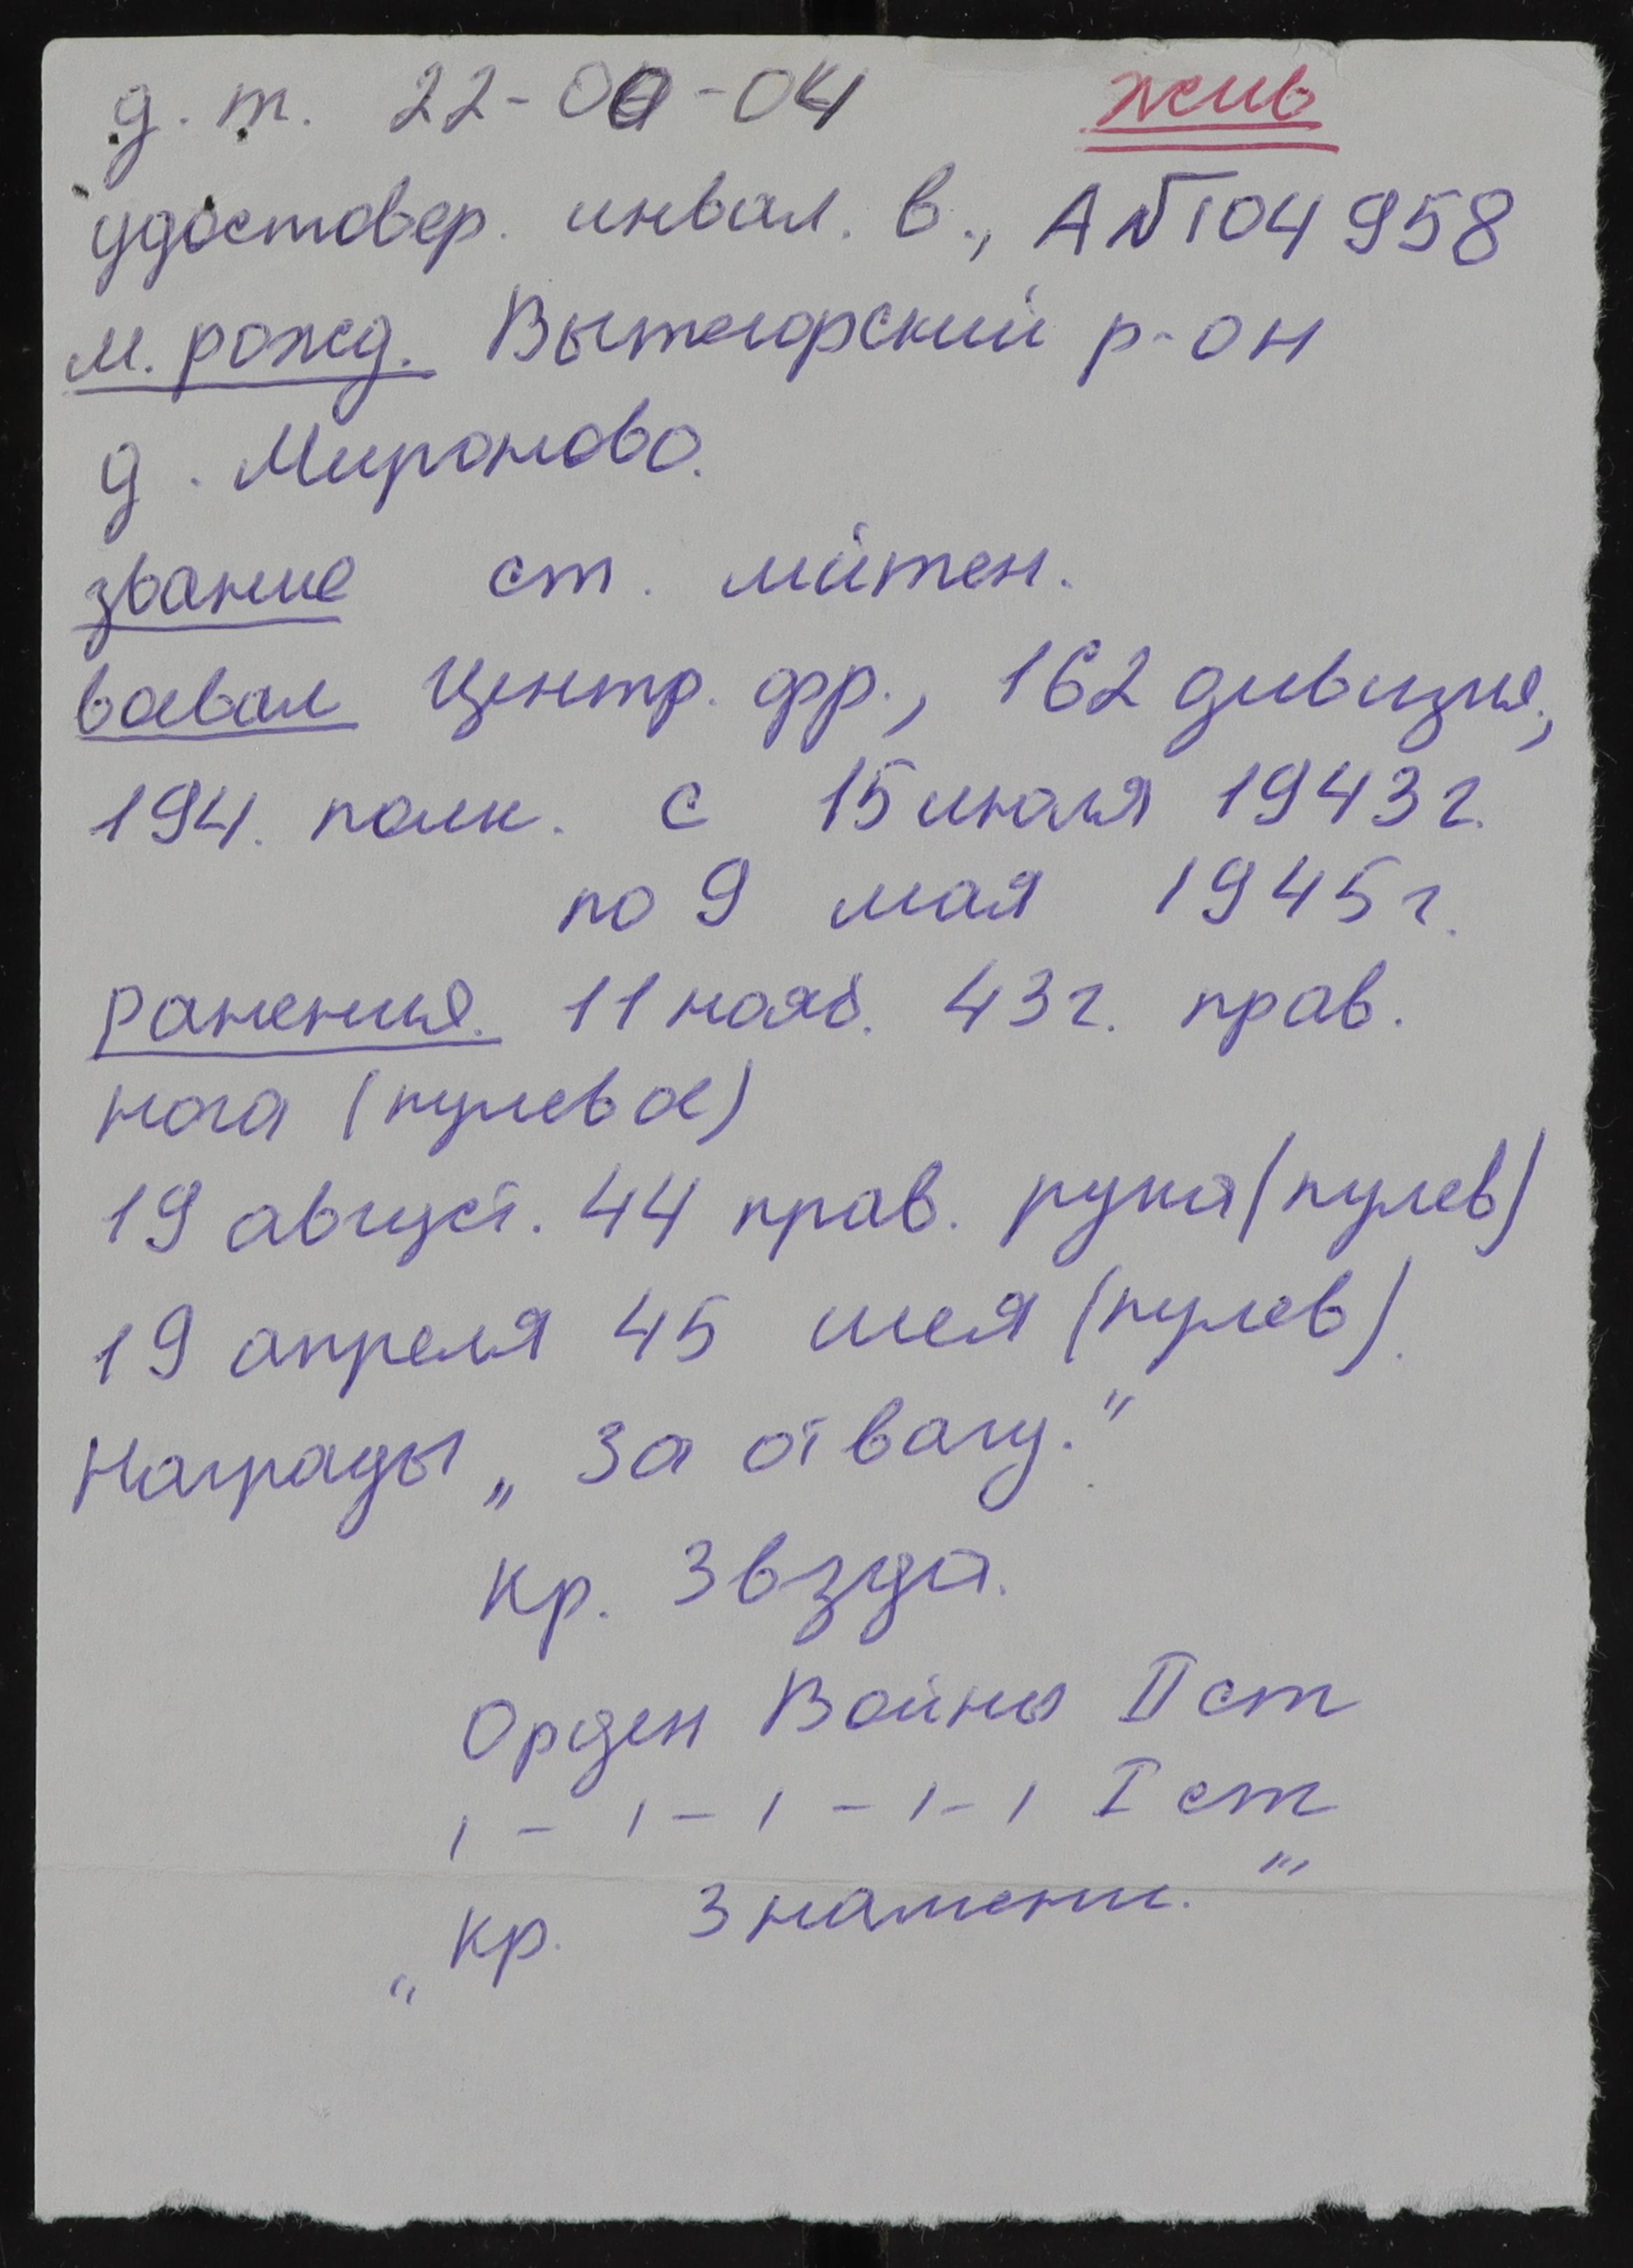 д. т. 22-00-04 жив
удостовер. инвал. в., А № 104958
м. рожд. Вытегорский р-он
д. Мироново.
звание ст. лейтен.
воевал Центр. фр., 162 дивизия,
194. полк. с 15 июля 1943 г.
по 9 мая 1945 г.
ранения. 11 нояб. 43 г. прав.
нога (пулевое)
19 август. 44 прав. рука (пулев)
19 апреля 45 шея (пулев).
Награды „За отвагу."
Кр. Звзда.
Орден Войны II ст
ı – ı – ı – ı – ı I ст
„Кр. Знамени."